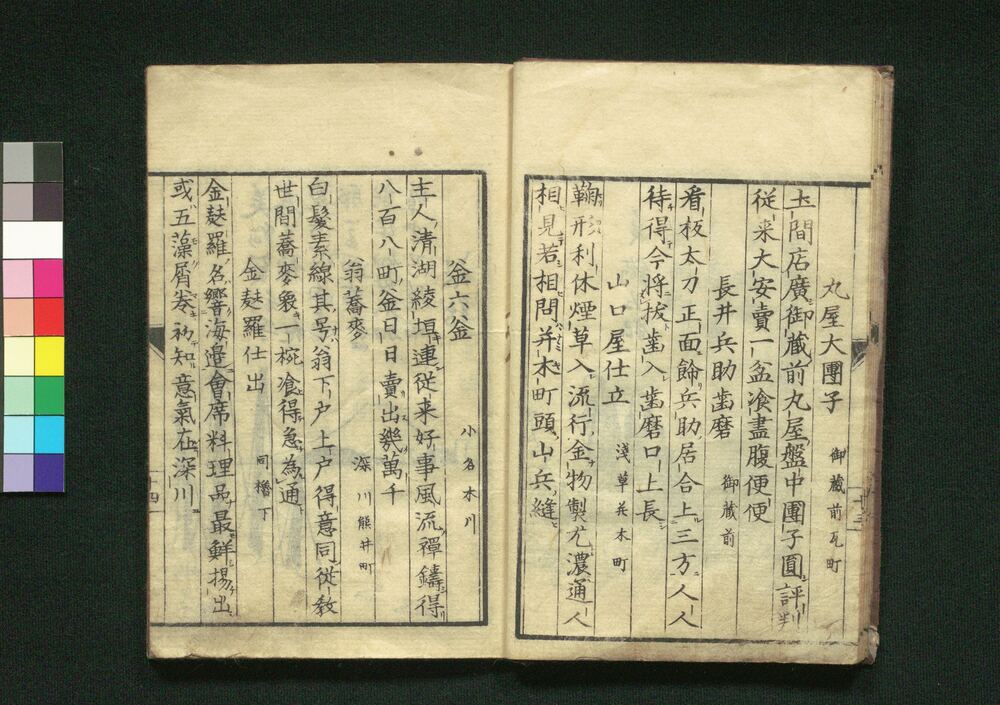 丸屋大團子 御蔵前瓦町
土間店廣御蔵前丸屋盤中團子圓評判
従来大安賣一盆飡盡腹便便
長井兵助歯磨 御蔵前
看板太刀正面餝兵助居合上三方人人
待得今將拔歯入歯磨口上長
山口屋仕立 淺草並木町
鞠形利休煙草入流行金物製尤濃通人
相見若相問并木町頭山兵縫
釡六釡 小名木川
主人清湖綾垣連従来好事風流禪鑄得
八百八町釡日日賣出幾萬千
翁蕎麥 深川熊井町
白髪素線其号翁下戸上戸得意同従教
世間蕎麥衆一椀飡得急為通
金麸羅仕出 同櫓下
金麸羅名響海邉會席料理品最鮮揚出
或五藻屑巻初知意氣在深川